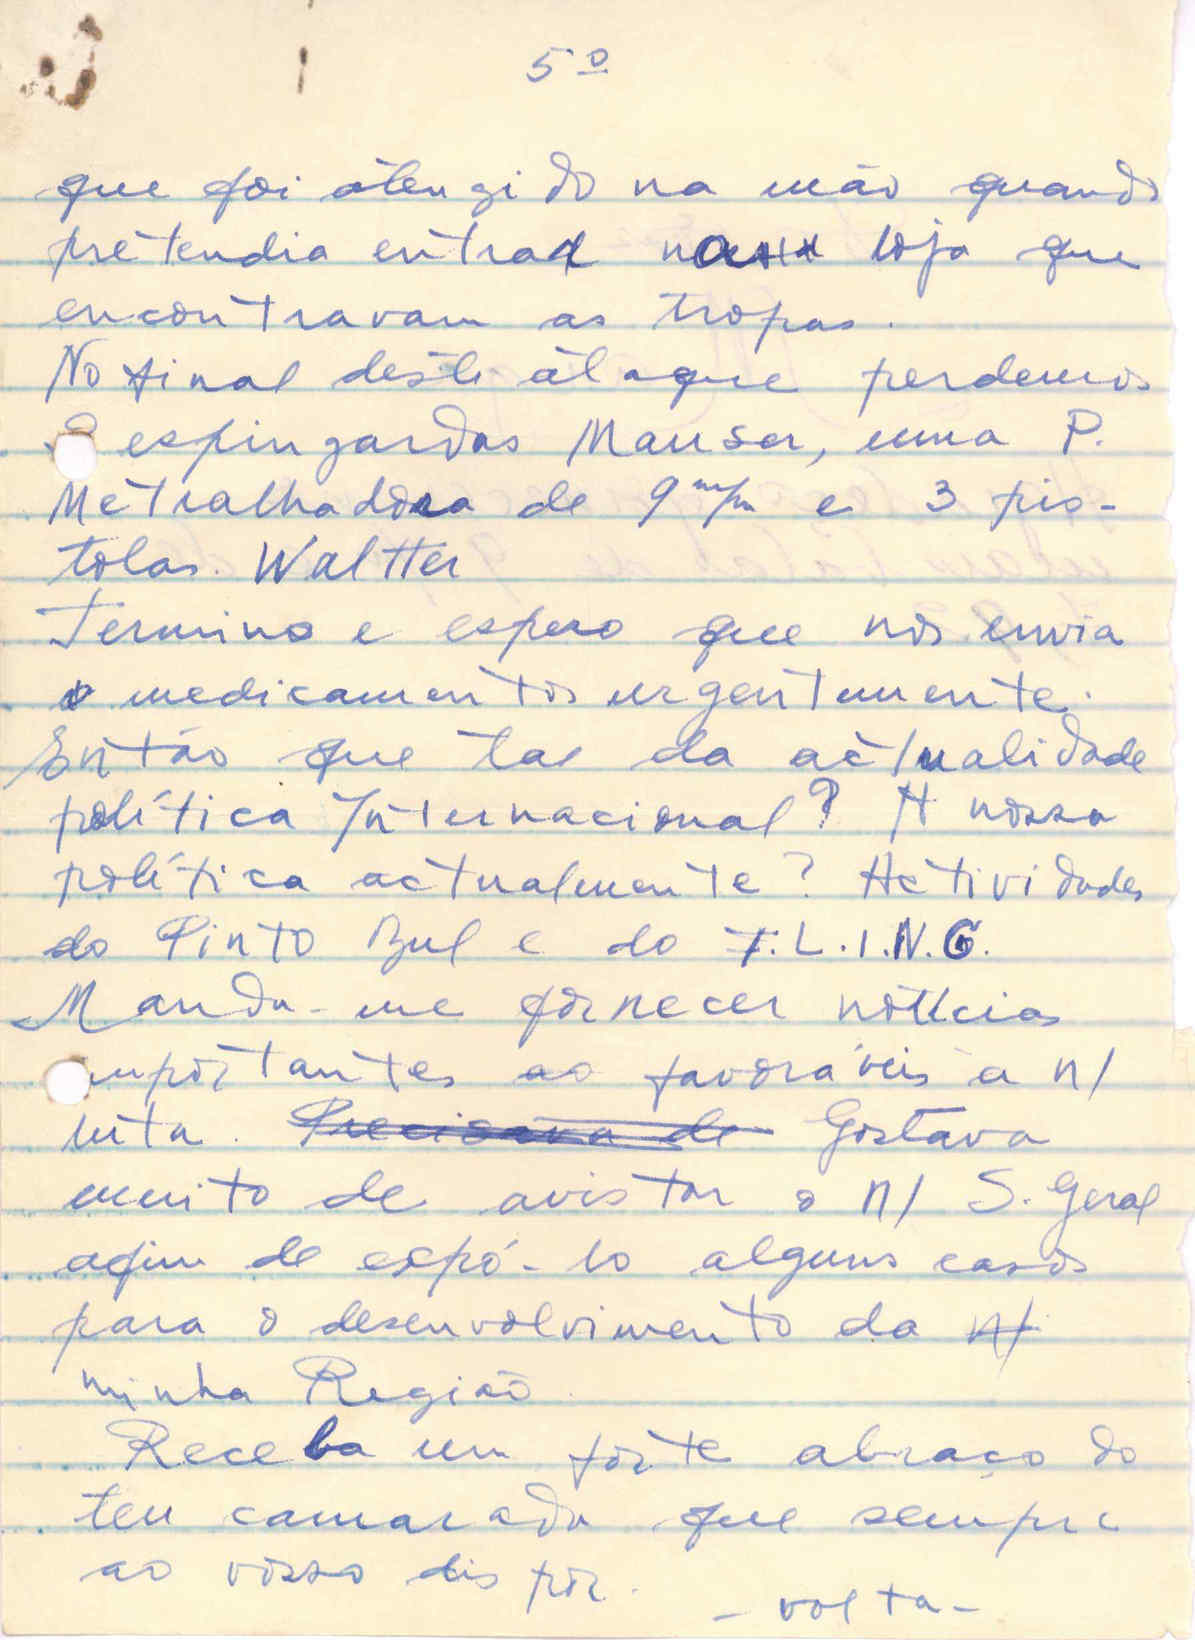 5º
que foi atengido na mão quando
pretendia entrar na loja que
encontravam as tropas.
No final deste ataque perdemos
espingardas Mauser, uma P.
Metralhadora de 9 m/m e 3 pis-
tolas. Waltter
Termino e espero que nos envia
o medicamentos urgentemente.
Então que tal da actualidade
política Internacional? A nossa
política actualmente? Actividades
do Pinto Bul e do F.L.I.N.G.
Manda-me fornecer notícias
importantes ao favoráveis à n/
luta. Precisava de Gostava
muito de avistar o n/ S. Geral
afim de expó-lo alguns casos
para o desenvolvimento da n/
minha Região.
Receba um forte abraço do
teu camarada que sempre
ao vosso dispor.
- volta -